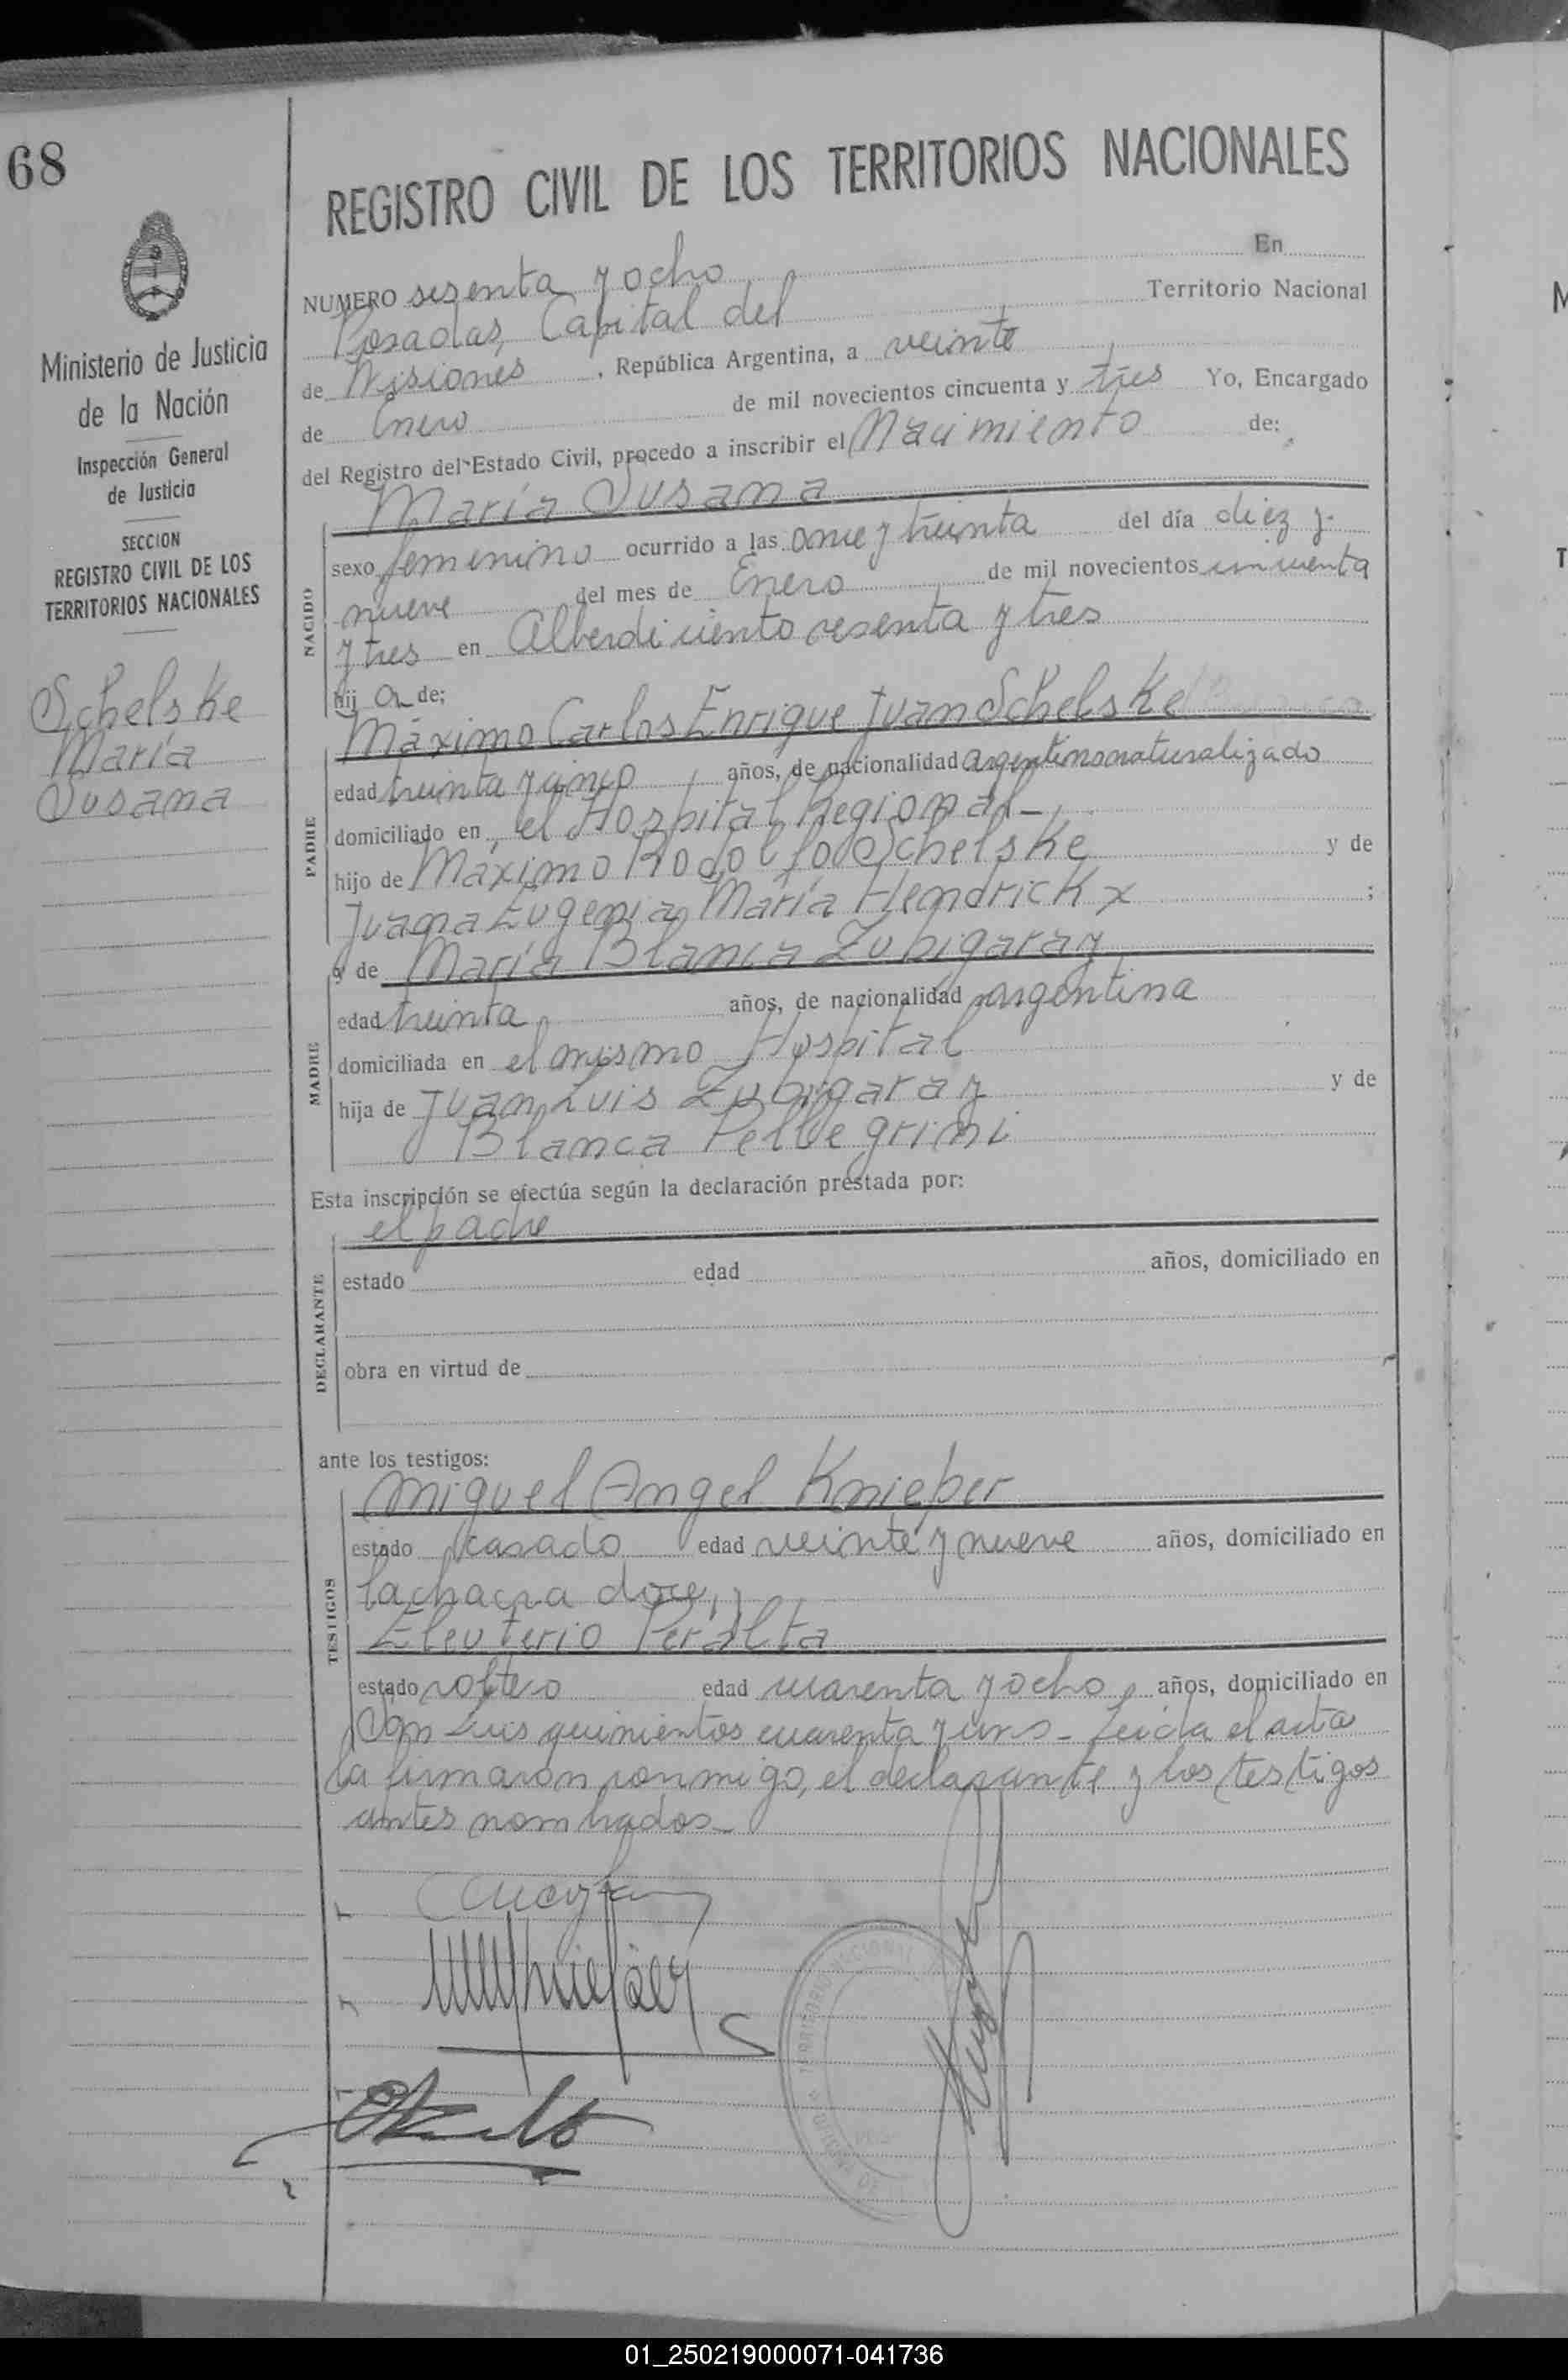 68
Ministerio de Justicia
de la Nación
Inspección General
de Justicia
SECCION
REGISTRO CIVIL DE LOS
TERRITORIOS NACIONALES
Schelske
María
Susana
REGISTRO CIVIL DE LOS TERRITORIOS NACIONALES
NUMERO sesenta y ocho En
Posadas, Capital del Territorio Nacional
de Misiones, República Argentina, a veinte
de Enero de mil novecientos cincuenta y tres Yo, Encargado
del Registro del Estado Civil, procedo a inscribir el Nacimiento de:
María Susana
NACIDO
sexo femenino ocurrido a las once y treinta del día diez y
nueve del mes de Enero de mil novecientos cincuenta
y tres en Alberdi ciento sesenta y tres
hij a de;
Máximo Carlos Enrique Juan Schelske
PADRE
edad treinta y cinco años, de nacionalidad argentino naturalizado
domiciliado en el Hospital Regional -
hijo de Máximo Rodolfo Schelske y de
Juana Eugenia María Hendrickx ;
y de María Blanca Zubigaray
MADRE
edad treinta años, de nacionalidad argentina
domiciliada en el mismo Hospital
hija de Juan Luis Zubigaray y de
Blanca Pellegrini
Esta inscripción se efectúa según la declaración prestada por:
el padre
DECLARANTE
estado edad años, domiciliado en
obra en virtud de
ante los testigos:
Miguel Angel Knieper
TESTIGOS
estado casado edad veinte y nueve años, domiciliado en
la chacra doce,
Eleuterio Peralta
estado soltero edad cuarenta y ocho años, domiciliado en
San Luis quinientos cuarenta y uno - Leída el acta
la firmaron conmigo, el declarante y los testigos
antes nombrados -
TERRITORIO NACIONAL
01_250219000071-041736